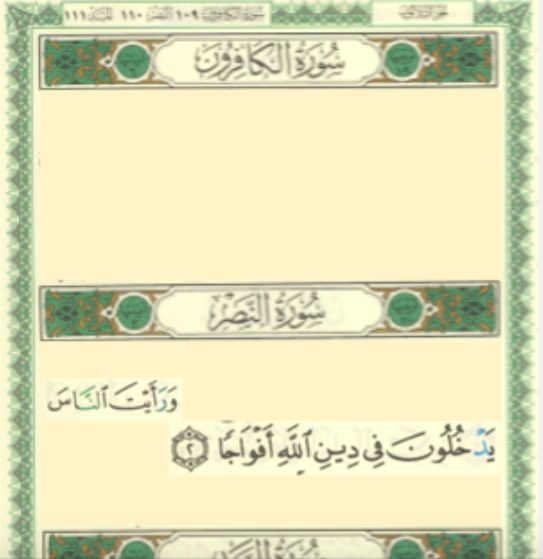 سُورَةُ الكَافِرُونَ ١٠٩ النَّصْرِ ١١٠ المَسَدِ ١١١
سُورَةُ الكَافِرُونَ
سُورَةُ النَّصْرِ
وَرَأَيْتَ ٱلنَّاسَ
يَدْخُلُونَ فِي دِينِ ٱللَّهِ أَفْوَاجًا ٢